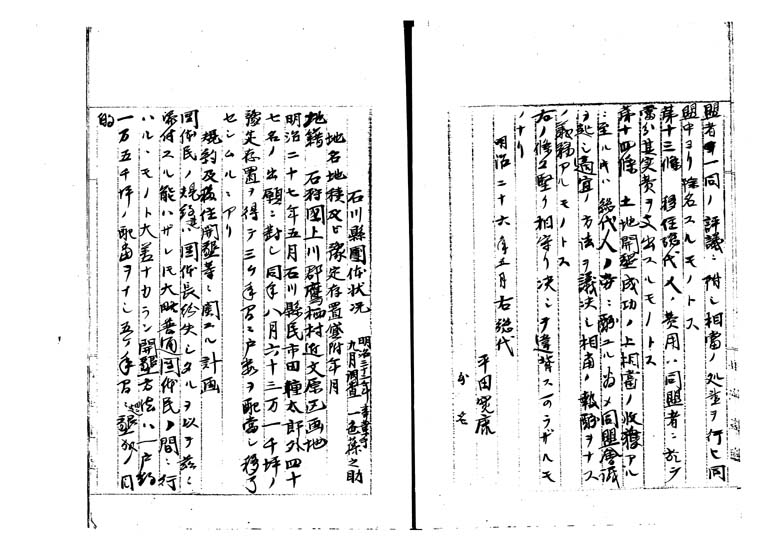 盟者一同ノ評議ニ附シ相當ノ処置ヲ行ヒ同
盟中ヨリ除名スルモノトス
第十三條 移住総代人ノ費用ハ同盟者ニ於テ
其実費ヲ支出スルモノトス
第十四條 土地開墾成功ノ上相當ノ收穫アル
ニ至ルキハ総代人ノ労ニ酬ユル為メ同盟會議
ヲ起シ適宜ノ方法ヲ議決シ相當ノ報酬ヲナス
ノ義務アルモノトス
右ノ條々堅ク相守リ決シテ違背スベカラザルモ
ノナリ
明治二十六年五月右総代
平田
石川縣團体状况
明治三十三年
九月調査
地名地積及ヒ豫定存置貸附年月
地籍 石狩國上川郡鷹栖村近文原区画地
明治二十七年五月石川縣民市田 太郎外四十
七名ノ出願ニ對シ同年八月六十三万一千坪ノ
豫定存置ヲ得テ三ヶ年間ニ戸数ヲ配當シ移
センムルニアリ
規約及移住開墾等ニ関スル計画
団体民ノ規約書ハ団体長紛失シタルヲ以テ茲ニ
添付スル能ハザレ 大畧普通団体民ノ間ニ行
ハルヽモノト大差ナカラン開墾方法ハ一戸約
一万五千坪ノ配當ヲナシ五ヶ年間ニ墾成ノ目
的